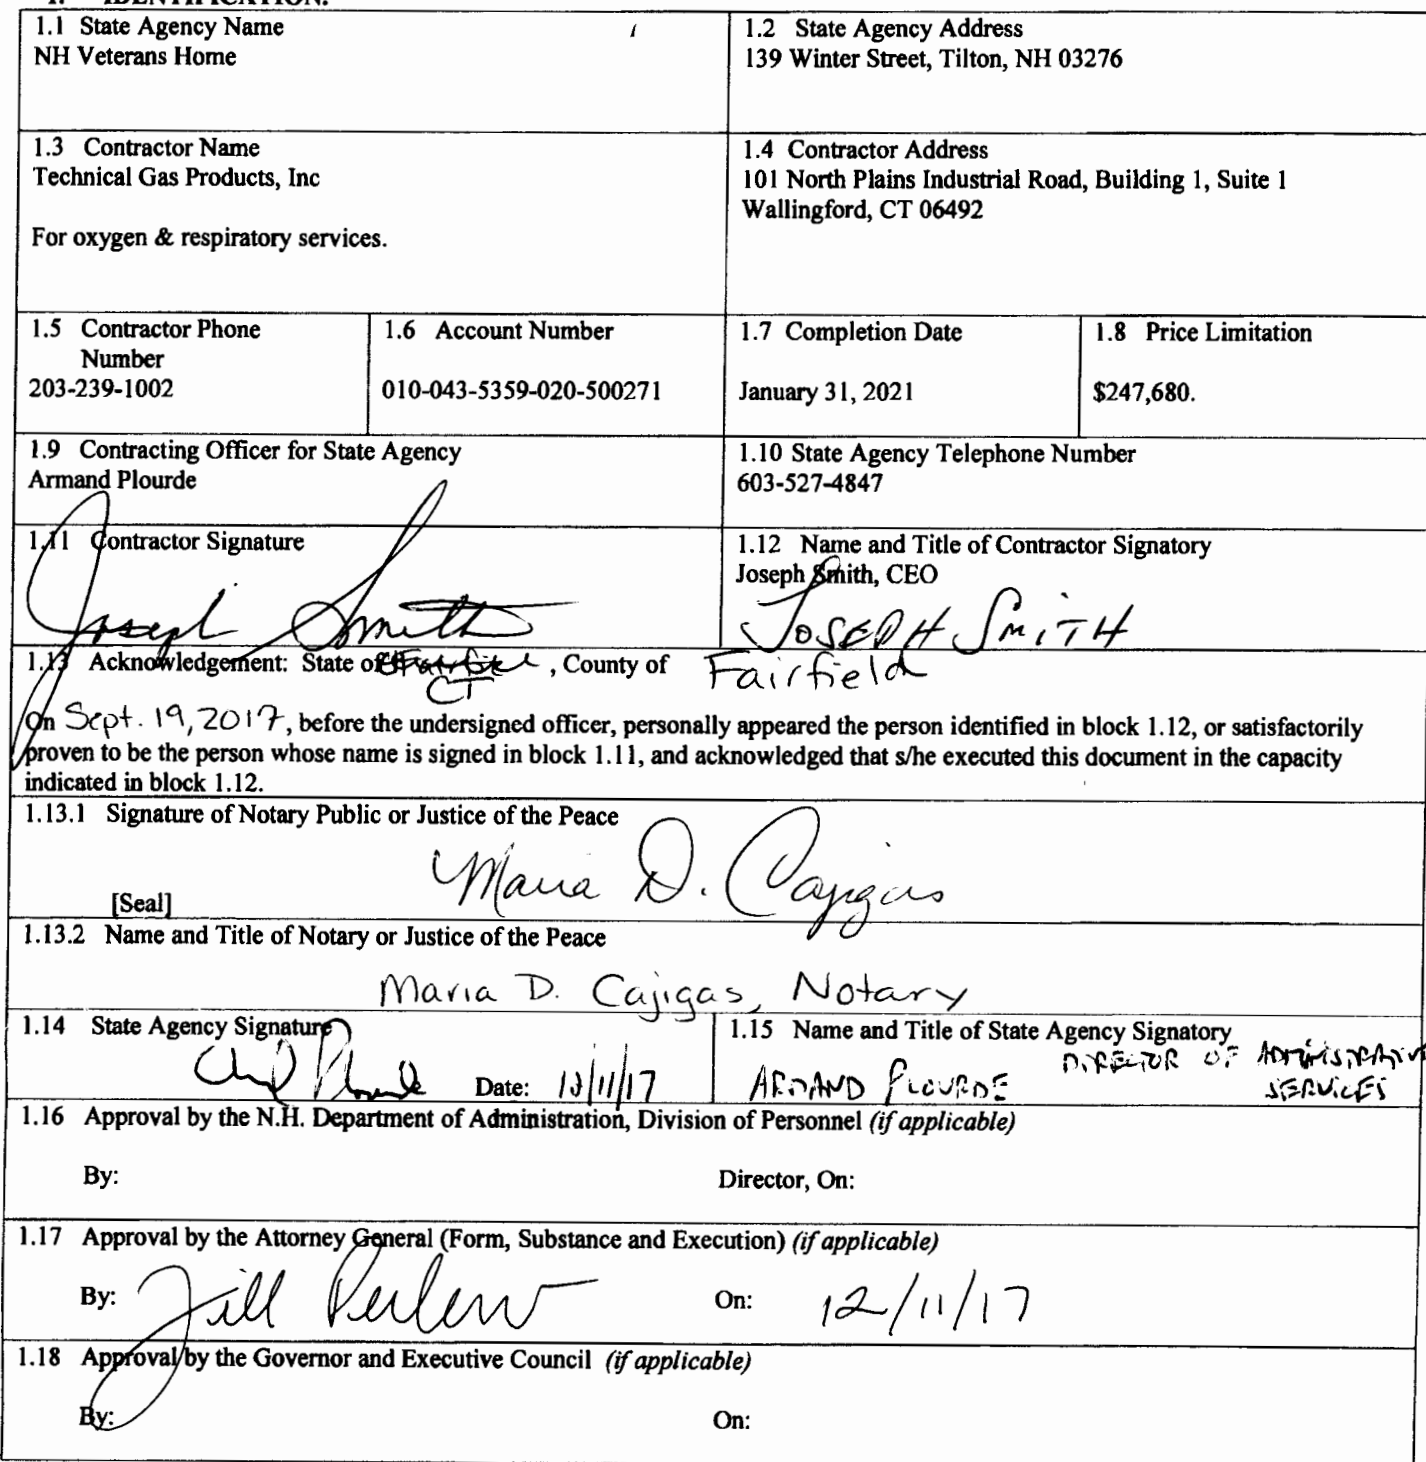 1. IDENTIFICATION.
1.1 State Agency Name
NH Veterans Home
1.2 State Agency Address
139 Winter Street, Tilton, NH 03276
1.3 Contractor Name
Technical Gas Products, Inc
For oxygen & respiratory services.
1.4 Contractor Address
101 North Plains Industrial Road, Building 1, Suite 1
Wallingford, CT 06492
1.5 Contractor Phone
Number
203-239-1002
1.6 Account Number
010-043-5359-020-500271
1.7 Completion Date
January 31, 2021
1.8 Price Limitation
$247,680.
1.9 Contracting Officer for State Agency
Armand Plourde
1.10 State Agency Telephone Number
603-527-4847
1.11 Contractor Signature
Joseph Smith
1.12 Name and Title of Contractor Signatory
Joseph Smith, CEO
JOSEPH SMITH
1.13 Acknowledgement: State of CT, County of Fairfield
On Sept. 19, 2017, before the undersigned officer, personally appeared the person identified in block 1.12, or satisfactorily
proven to be the person whose name is signed in block 1.11, and acknowledged that s/he executed this document in the capacity
indicated in block 1.12.
1.13.1 Signature of Notary Public or Justice of the Peace
Maria D. Cajigas
[Seal]
1.13.2 Name and Title of Notary or Justice of the Peace
Maria D. Cajigas, Notary
1.14 State Agency Signature
Date: 12/11/17
1.15 Name and Title of State Agency Signatory
ARMAND PLOURDE DIRECTOR OF ADMINISTRATIVE
SERVICES
1.16 Approval by the N.H. Department of Administration, Division of Personnel (if applicable)
By: Director, On:
1.17 Approval by the Attorney General (Form, Substance and Execution) (if applicable)
By: Jill Perlow On: 12/11/17
1.18 Approval by the Governor and Executive Council (if applicable)
By: On: